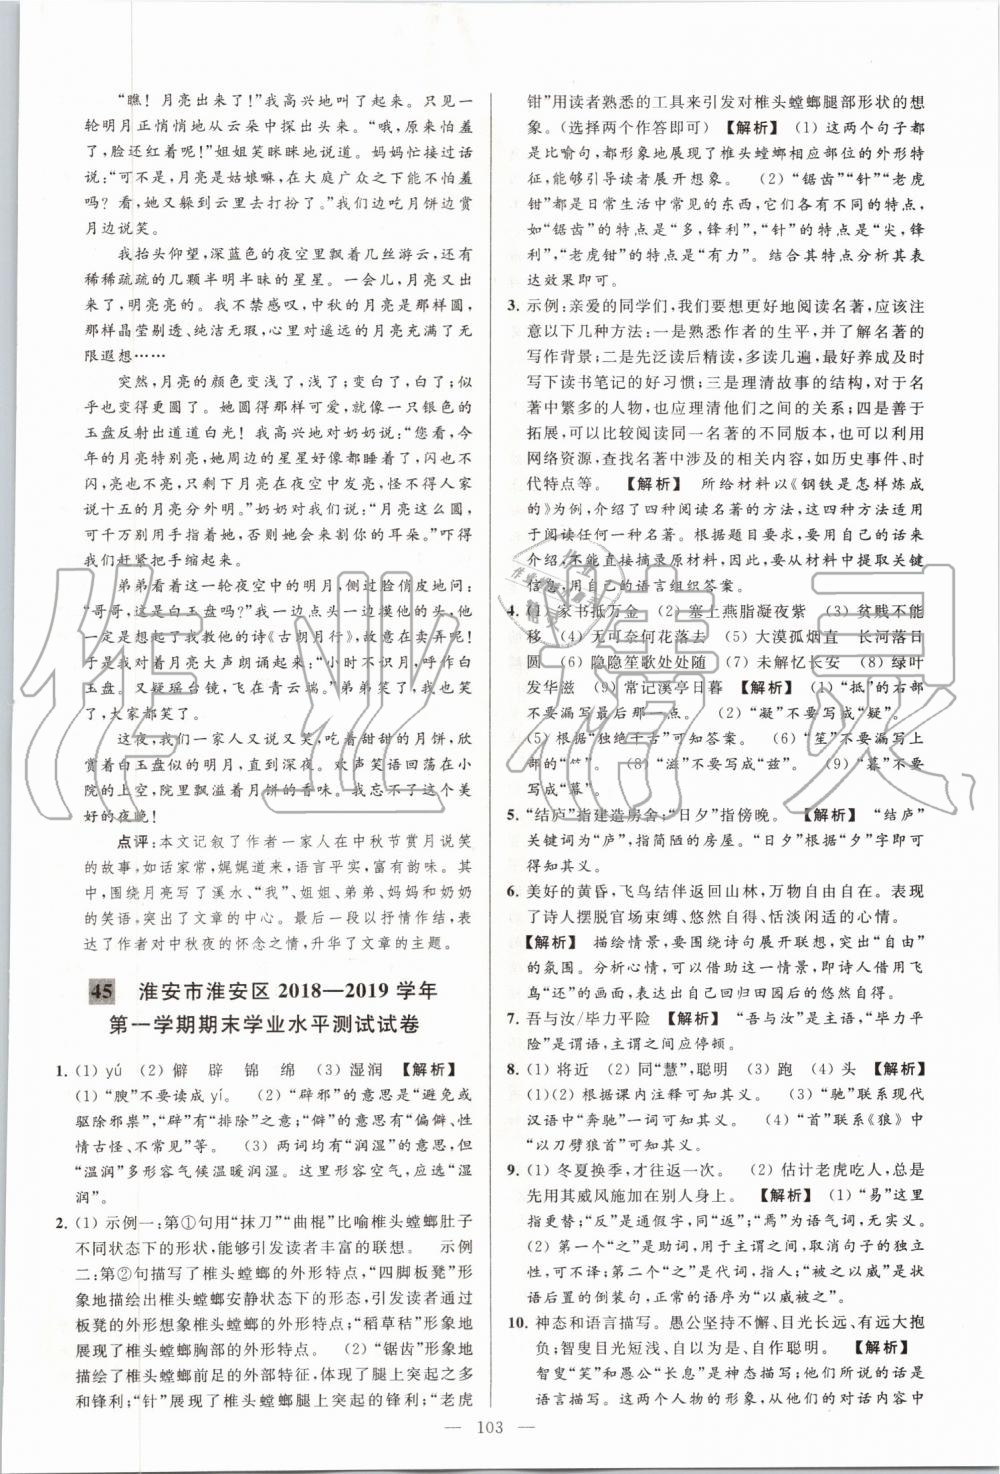 “瞧！月亮出来了！”我高兴地叫了起来。只见一
轮明月正悄悄地从云朵中探出头来。“哦，可能怕羞
了，脸还红着呢！”姐姐笑眯眯地说道。妈妈忙接过话
说：“可不是，月亮是姑娘嘛，在大庭广众之下能不怕羞
吗？看，她又躲到云里去打扮了。”我们边吃月饼边赏
月边说笑。
我抬头仰望，深蓝色的夜空里飘着几丝游云，还有
稀稀疏疏的几颗半明半昧的星星。一会儿，月亮又出
来了，明亮亮的。我不禁感叹，中秋的月亮是那样圆，
那样晶莹剔透、纯洁无瑕，心里对遥远的月亮充满了无
限遐想……
突然，月亮的颜色变浅了，浅了；变白了，白了；似
乎也变得更圆了。她圆得那样可爱，就像一只银色的
玉盘反射出道道白光！我高兴地对奶奶说：“您看，今
年的月亮特别亮，她周边的星星好像都睡着了，闪也不
闪，亮也不亮，只是静静地待在那里。怪不得人家说
说十五的月亮分外明。”奶奶对我们说：“月亮这么圆，
可千万别用手指着她，否则她会来割你们的耳朵。”吓得
我们赶紧把手缩起来。
弟弟看着这一轮夜空中的明月，侧过脸俏皮地问：
“哥哥，这是白玉盘吗？”我一边点头一边摸摸他的头，他
一定是想起了我教他的诗《古朗月行》，故意在卖弄呢！
他对着月亮大声朗诵起来：“小时不识月，呼作白
玉盘。又疑瑶台镜，飞在青云端。”弟弟笑了，我笑
了，大家都笑了。
这夜，我们一家人又说又笑，吃着甜甜的月饼，欣
赏着白玉盘似的明月，看着奶奶的笑容荡漾在小
院的上空，院里飘溢着月饼的香味。我不禁感叹：美
好的夜晚！
点评：本文记叙了作者一家人在中秋节赏月说笑
的故事，如话家常，娓娓道来，语言平实，富有韵味。其
中，围绕月亮写了溪水、“我”、姐姐、弟弟、妈妈和奶奶
的笑语，突出了文章的中心。最后一段以抒情作结，表
达了作者对中秋夜的怀念之情，升华了文章的主题。
45 淮安市淮安区 2018—2019 学年
第一学期期末学业水平测试试卷
1. (1) yú (2) 僻 辟 锦 绵 (3) 湿润 【解析】
(1)“腴”不要读成 yí。 (2)“辟邪”的意思是“避免或
驱除邪祟”，“辟”有“排除”之意；“僻”的意思有“偏僻、性
情古怪、不常见”等。 (3) 两词均有“润湿”的意思，但
“温润”多形容气候温暖润湿。这里形容空气，应选“湿
润”。
2. (1) 示例一：第①句用“抹刀”“曲棍”比喻椎头螳螂肚子
不同状态下的形状，能够引发读者丰富的联想。 示例
二：第②句描写了椎头螳螂的外形特点，“四脚板凳”形
象地描绘出椎头螳螂安静状态下的形状，使读者通过
板凳的外形想象椎头螳螂的外形特点；“稻草秸”形象地
展现了椎头螳螂胸部的外形特点。 (2)“锯齿”形象地
展现了椎头螳螂前足的外部特征，体现了腿上突起之多
和锋利；“针”展现了椎头螳螂腿上突起的锋利；“老虎
钳”用读者熟悉的工具来引发对椎头螳螂腿部形状的想
象。（选择两个作答即可）【解析】 (1) 这两个句子都
是比喻句，都形象地展现了椎头螳螂相应部位的外形特
征，能够引导读者展开想象。 (2)“锯齿”“针”“老虎
钳”都是日常生活中常见的东西，它们各有不同的特点，
如“锯齿”的特点是“多，锋利”，“针”的特点是“尖，锋
利”，“老虎钳”的特点是“有力”。结合其特点分析其表
达效果即可。
3. 示例：亲爱的同学们，我们要想更好地阅读名著，应该注
意以下几种方法：一是熟悉作者的生平，并了解名著的
写作背景；二是先泛读后精读，多读几遍，最好养成及时
写下读书笔记的好习惯；三是理清故事的结构，对于名
著中繁多的人物，也应理清他们之间的关系；四是善于
拓展，可以比较阅读同一名著的不同版本，也可以利用
网络资源，查找名著中涉及的相关内容，如历史事件、时
代特点等。 【解析】 所给材料以《钢铁是怎样炼成
的》为例，介绍了四种阅读名著的方法，这种方法适
用于阅读任何一种名著。根据题目要求，用自己的话来
介绍，不能直接摘录原材料，因此，要从材料中提取关键
信息，用自己的语言组织答案。
4. (1) 家书抵万金 (2) 塞上燕脂凝夜紫 (3) 贫贱不能
移 (4) 无可奈何花落去 (5) 大漠孤烟直 长河落日
圆 (6) 隐隐笙歌处处随 (7) 未解忆长安 (8) 绿叶
发华滋 (9) 常记溪亭日暮 【解析】 (1)“抵”的右部
不要漏写最后那一点。 (2)“凝”不要写成“疑”。
(5) 根据“独绝千古”可知答案。 (6)“笙”不要漏写上
部的“⺮”。 (8)“滋”不要写成“兹”。 (9)“暮”不要
写成“幕”。
5. “结庐”指建造房舍；“日夕”指傍晚。 【解析】 “结庐”
关键词为“庐”，指简陋的房屋。“日夕”关键于“夕”字即可
得知其义。
6. 美好的黄昏，飞鸟结伴返回山林，万物自由自在。表现
了诗人摆脱官场束缚、悠然自得、恬淡闲适的心情。
【解析】 描绘情景，要围绕诗句展开联想，突出“自由”
的氛围。分析心情，要关注作者的生活经历，从“飞鸟
还”联想到诗人悠然自得的心情。
7. 吾与汝/毕力平险 【解析】 “吾与汝”是主语，“毕力平
险”是谓语，主谓之间应停顿。
8. (1) 将近 (2) 同“慧”，聪明 (3) 跑 (4) 头 【解析】
(1)(2) 根据课内注释可知其义。 (3)“驰”联系现代
汉语中“奔驰”一词可知其义。 (4)“首”联系《狼》中
“以刀劈狼首”可知其义。
9. (1) 冬夏换季，才往返一次。 (2) 估计老虎吃人，总是
先用其威风施加在别人身上。 【解析】 (1)“易”这里
指更替；“反”是通假字，同“返”；“焉”为语气词，无实义。
(2) 第一个“之”是助词，用于主谓之间，取消句子的独立
性，可不译；第二个“之”是代词，指人；“被之以威”是
状语后置的倒装句，正常的语序为“以威被之”。
10. 神态和语言描写。愚公坚持不懈、目光长远、有远大抱
负；智叟目光短浅、自以为是、自作聪明。 【解析】
智叟“笑”和愚公“长息”是神态描写；他们的话是
语言描写。这两个人物的形象，从他们的对话内容中
— 103 —